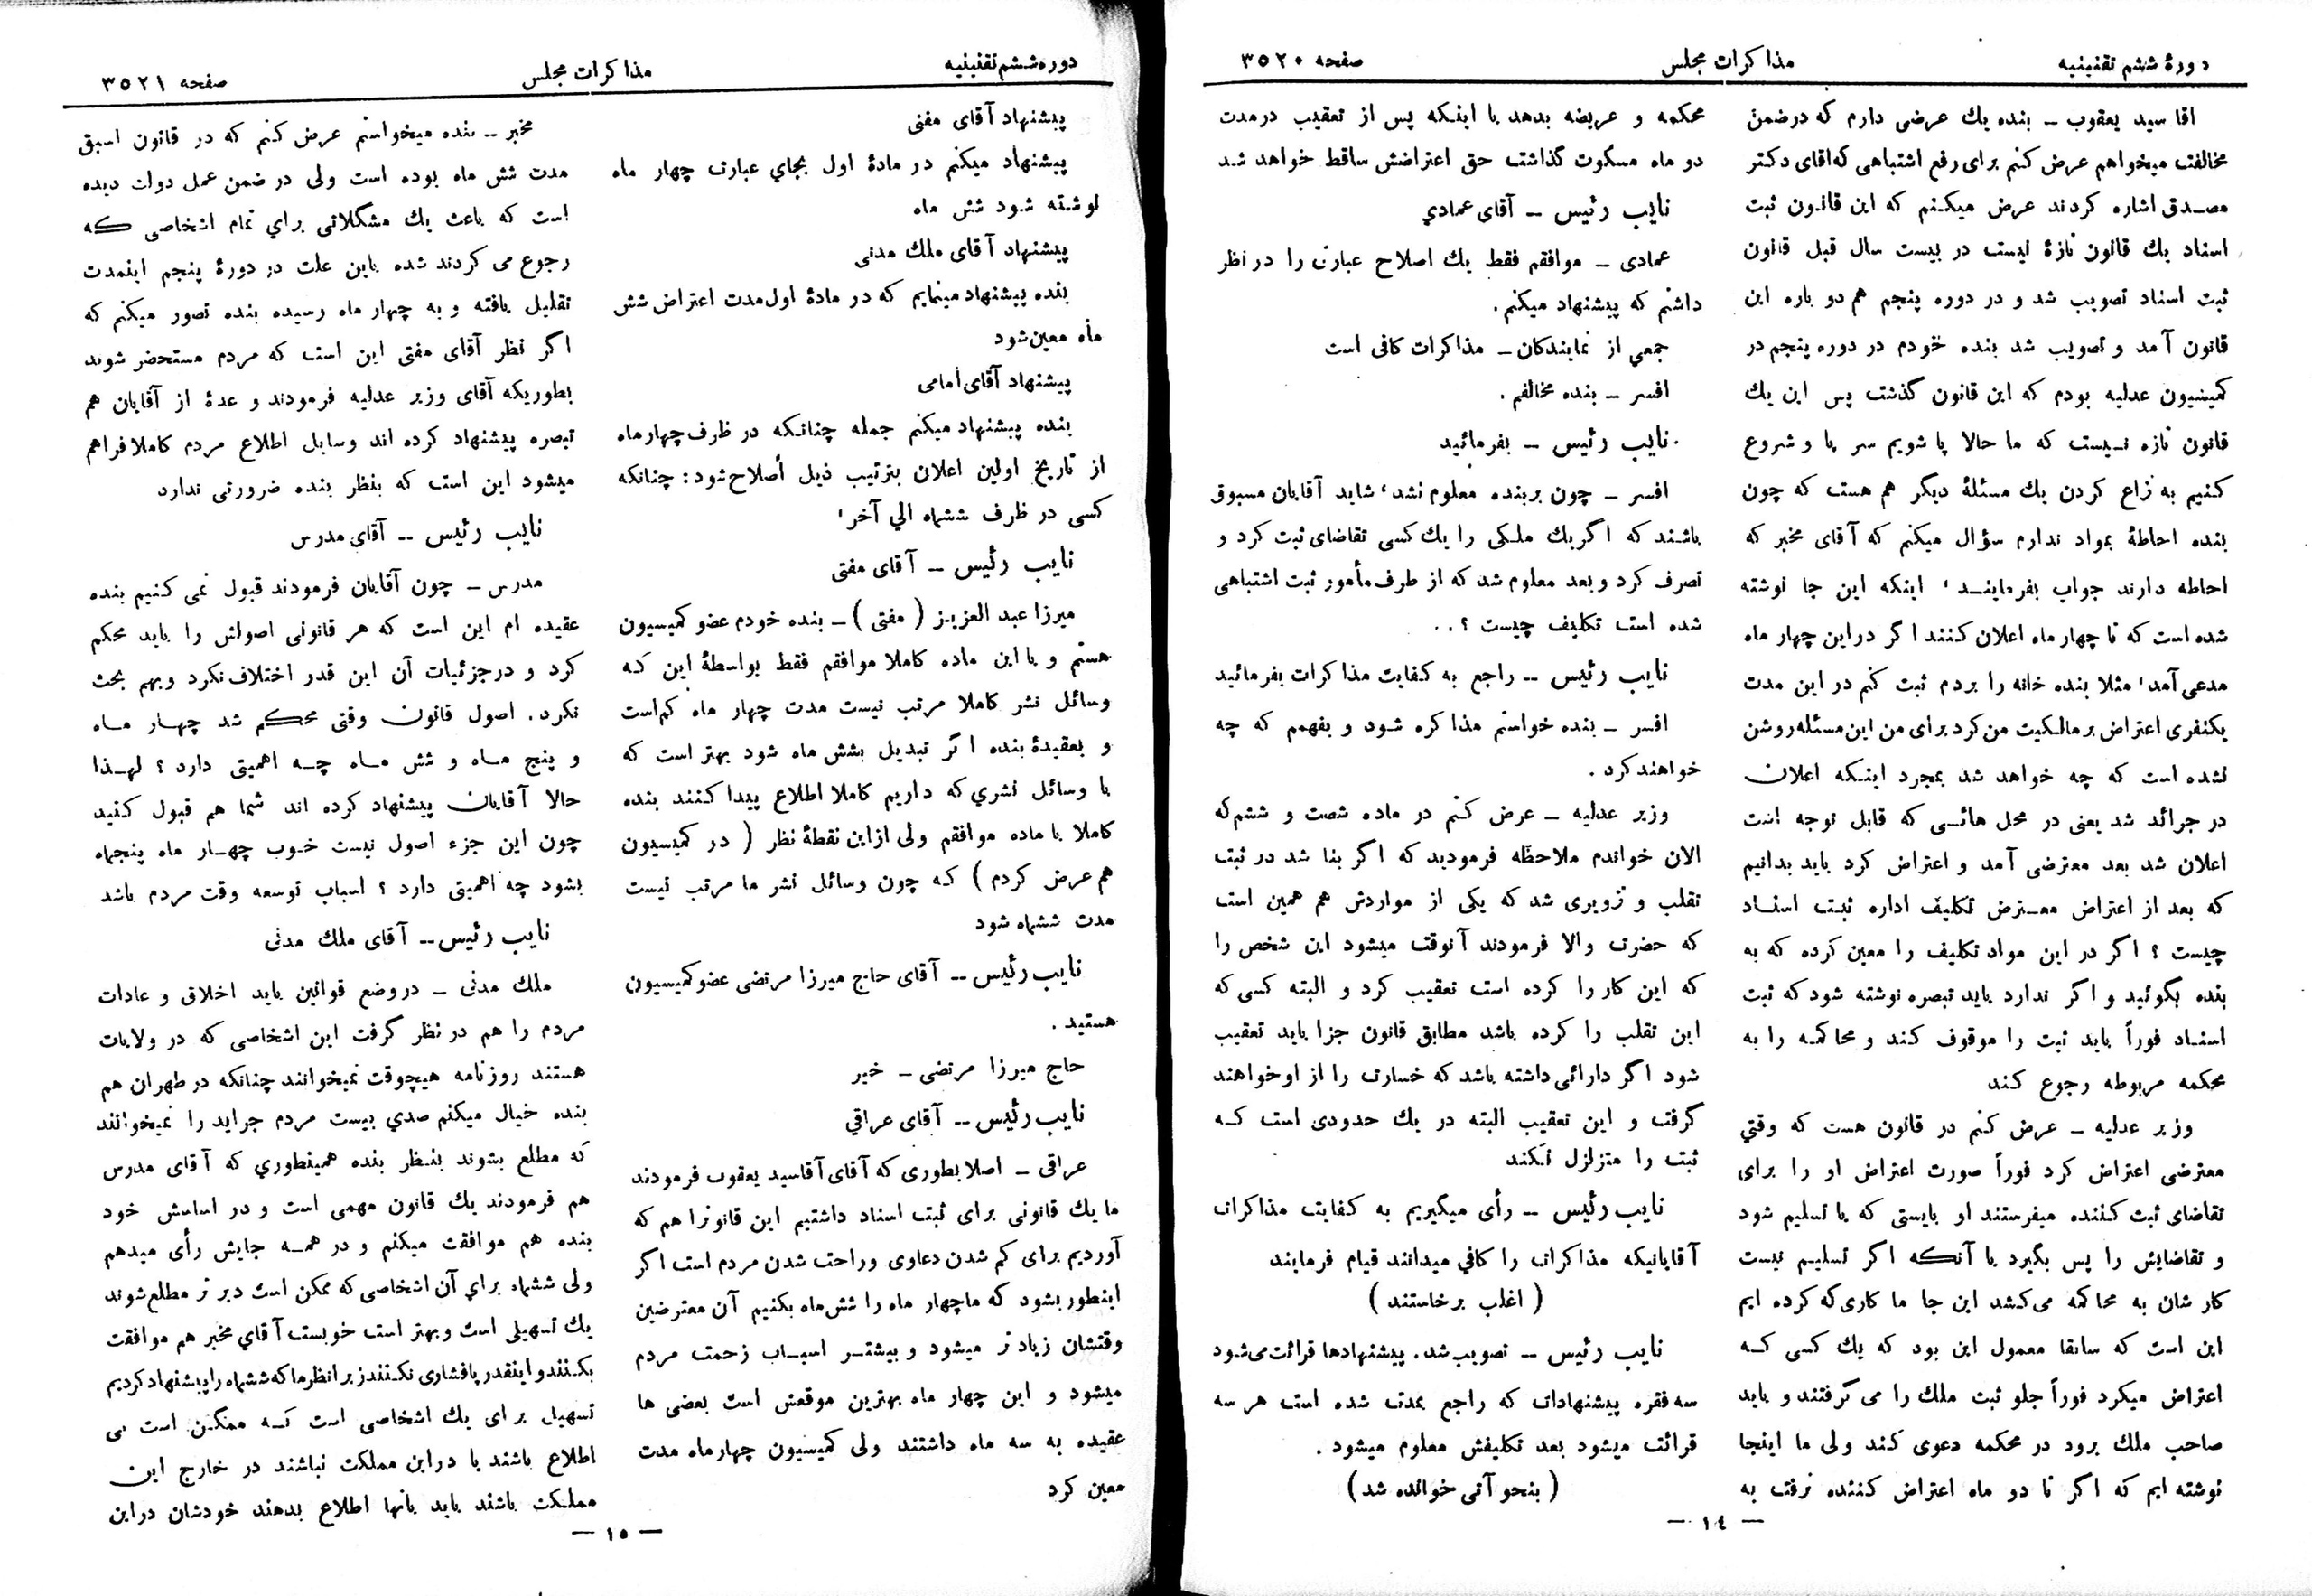 دورهٔ ششم تقنینیه
مذاکرات مجلس
صفحه ۳۵۲۰
اقا سید یعقوب ــ بنده یك عرضی دارم که درضمن
مخالفت میخواهم عرض کنم برای رفع اشتباهی که اقای دکتر
مصدق اشاره کردند عرض میکنم که این قانون ثبت
اسناد یك قانون تازهٔ نیست در بیست سال قبل قانون
ثبت اسناد تصویب شد و در دوره پنجم هم دو باره این
قانون آمد و تصویب شد بنده خودم در دوره پنجم در
کمیسیون عدلیه بودم که این قانون گذشت پس این یك
قانون تازه نیست که ما حالا پا شویم سر پا و شروع
کنیم به نزاع کردن یك مسئلهٔ دیگر هم هست که چون
بنده احاطهٔ بمواد ندارم سؤال میکنم که آقای مخبر که
احاطه دارند جواب بفرمایند، اینکه این جا نوشته
شده است که تا چهار ماه اعلان کنند اگر دراین چهار ماه
مدعی آمد، مثلا بنده خانه را بردم ثبت کنم در این مدت
یکنفری اعتراض بر مالکیت من کرد برای من این مسئله روشن
نشده است که چه خواهد شد بمجرد اینکه اعلان
در جرائد شد یعنی در محل هائی که قابل توجه است
اعلان شد بعد معترضی آمد و اعتراض کرد باید بدانیم
که بعد از اعتراض معترض تکلیف اداره ثبت اسناد
چیست ؟ اگر در این مواد تکلیف را معین کرده که به
بنده بگوئید و اگر ندارد باید تبصره نوشته شود که ثبت
اسناد فوراً باید ثبت را موقوف کند و محاکمه را به
محکمه مربوطه رجوع کند
وزیر عدلیه ــ عرض کنم در قانون هست که وقتي
معترضی اعتراض کرد فوراً صورت اعتراض او را برای
تقاضای ثبت کننده میفرستند او بایستی که یا تسلیم شود
و تقاضایش را پس بگیرد یا آنکه اگر تسلیم نیست
کار شان به محاکمه می‌کشد این جا ما کاری که کرده ایم
این است که سابقا معمول این بود که یك کسی که
اعتراض میکرد فوراً جلو ثبت ملك را می گرفتند و باید
صاحب ملك برود در محکمه دعوی کند ولی ما اینجا
نوشته ایم که اگر تا دو ماه اعتراض کننده نرفت به
محکمه و عریضه بدهد یا اینکه پس از تعقیب درمدت
دو ماه مسکوت گذاشت حق اعتراضش ساقط خواهد شد
نایب رئیس ــ آقای عمادي
عمادی ــ موافقم فقط یك اصلاح عبارتی را در نظر
داشتم که پیشنهاد میکنم.
جمعي از نمایندکان ــ مذاکرات کافی است
افسر ــ بنده مخالفم.
نایب رئیس ــ بفرمائید
افسر ــ چون بربنده معلوم نشد، شاید آقایان مسبوق
باشند که اگر یك ملکی را یك کسی تقاضای ثبت کرد و
تصرف کرد و بعد معلوم شد که از طرف مأمور ثبت اشتباهی
شده است تکلیف چیست ؟..
نایب رئیس ــ راجع به کفایت مذاکرات بفرمائید
افسر ــ بنده خواستم مذاکره شود و بفهمم که چه
خواهند کرد.
وزیر عدلیه ــ عرض کنم در ماده شصت و ششم که
الان خواندم ملاحظه فرمودید که اگر بنا شد در ثبت
تقلب و تزویری شد که یکی از مواردش هم همین است
که حضرت والا فرمودند آنوقت میشود این شخص را
که این کار را کرده است تعقیب کرد و البته کسی که
این تقلب را کرده باشد مطابق قانون جزا باید تعقیب
شود اگر دارائی داشته باشد که خسارت را از او خواهند
گرفت و این تعقیب البته در یك حدودی است که
ثبت را متزلزل نکند
نایب رئیس ــ رأی میگیریم به کفایت مذاکرات
آقایانیکه مذاکرات را کافي میدانند قیام فرمایند
( اغلب برخاستند )
نایب رئیس ــ تصویب شد. پیشنهادها قرائت می‌شود
سه فقره پیشنهادات که راجع بمدت شده است هر سه
قرائت میشود بعد تکلیفش معلوم میشود.
( بنحو آتی خوانده شد )
ــ ۱٤ ــ
دوره ششم تقنینیه
مذاکرات مجلس
صفحه ۳۵۲۱
پیشنهاد آقای مفتی
پیشنهاد میکنم در مادهٔ اول بجاي عبارت چهار ماه
نوشته شود شش ماه
پیشنهاد آقای ملك مدنی
بنده پیشنهاد مینمایم که در مادهٔ اول مدت اعتراض شش
ماه معین شود
پیشنهاد آقای امامی
بنده پیشنهاد میکنم جمله چنانکه در ظرف چهارماه
از تاریخ اولین اعلان بترتیب ذیل اصلاح شود: چنانکه
کسی در ظرف ششماه الي آخر،
نایب رئیس ــ آقای مفتی
میرزا عبد العزیز ( مفتی ) ــ بنده خودم عضو کمیسیون
هستم و با این ماده کاملا موافقم فقط بواسطهٔ این که
وسائل نشر کاملا مرتب نیست مدت چهار ماه کم است
و بعقیدهٔ بنده اگر تبدیل بشش ماه شود بهتر است که
با وسائل نشري که داریم کاملا اطلاع پیدا کنند بنده
کاملا با ماده موافقم ولی از این نقطهٔ نظر ( در کمیسیون
هم عرض کردم ) که چون وسائل نشر ما مرتب نیست
مدت ششماه شود
نایب رئیس ــ آقای حاج میرزا مرتضی عضو کمیسیون
هستید.
حاج میرزا مرتضی ــ خیر
نایب رئیس ــ آقای عراقي
عراقی ــ اصلا بطوری که آقای آقاسید یعقوب فرمودند
ما یك قانونی برای ثبت اسناد داشتیم این قانونرا هم که
آوردیم برای کم شدن دعاوی و راحت شدن مردم است اگر
اینطور بشود که ما چهار ماه را شش ماه بکنیم آن معترضین
وقتشان زیاد تر میشود و بیشتر اسباب زحمت مردم
میشود و این چهار ماه بهترین موقعش است بعضی ها
عقیده به سه ماه داشتند ولی کمیسیون چهار ماه مدت
معین کرد
مخبر ــ بنده میخواستم عرض کنم که در قانون اسبق
مدت شش ماه بوده است ولی در ضمن عمل دولت دیده
است که باعث یك مشگلاتی براي تمام اشخاصی که
رجوع می کردند شده باین علت در دورهٔ پنجم اینمدت
تقلیل یافته و به چهار ماه رسیده بنده تصور میکنم که
اگر نظر آقای مفتی این است که مردم مستحضر شوند
بطوریکه آقای وزیر عدلیه فرمودند و عدهٔ از آقایان هم
تبصره پیشنهاد کرده اند وسایل اطلاع مردم کاملا فراهم
میشود این است که بنظر بنده ضرورتی ندارد
نایب رئیس ــ آقای مدرس
مدرس ــ چون آقایان فرمودند قبول نمی کنیم بنده
عقیده ام این است که هر قانونی اصولش را باید محکم
کرد و در جزئیات آن این قدر اختلاف نکرد و بهم بحث
نکرد. اصول قانون وقتی محکم شد چهار ماه
و پنج ماه و شش ماه چه اهمیتی دارد ؟ لهذا
حالا آقایان پیشنهاد کرده اند شما هم قبول کنید
چون این جزء اصول نیست خوب چهار ماه پنجماه
بشود چه اهمیتی دارد ؟ اسباب توسعه وقت مردم باشد
نایب رئیس ــ آقای ملك مدنی
ملك مدنی ــ دروضع قوانین باید اخلاق و عادات
مردم را هم در نظر گرفت این اشخاصی که در ولایات
هستند روزنامه هیچوقت نمیخوانند چنانکه در طهران هم
بنده خیال میکنم صدي بیست مردم جراید را نمیخوانند
که مطلع بشوند بنظر بنده همینطوري که آقای مدرس
هم فرمودند یك قانون مهمی است و در اساسش خود
بنده هم موافقت میکنم و در همه جایش رأی میدهم
ولی ششماه براي آن اشخاصی که ممکن است دیر تر مطلع شوند
یك تسهیلی است و بهتر است خوبست آقاي مخبر هم موافقت
بکنند و اینقدر پافشاری نکنند زیرا نظر ما که ششماه را پیشنهاد کردیم
تسهیل برای یك اشخاصی است که ممکن است بی
اطلاع باشند یا دراین مملکت نباشند در خارج این
مملکت باشند باید بآنها اطلاع بدهند خودشان دراین
ــ ۱۵ ــ